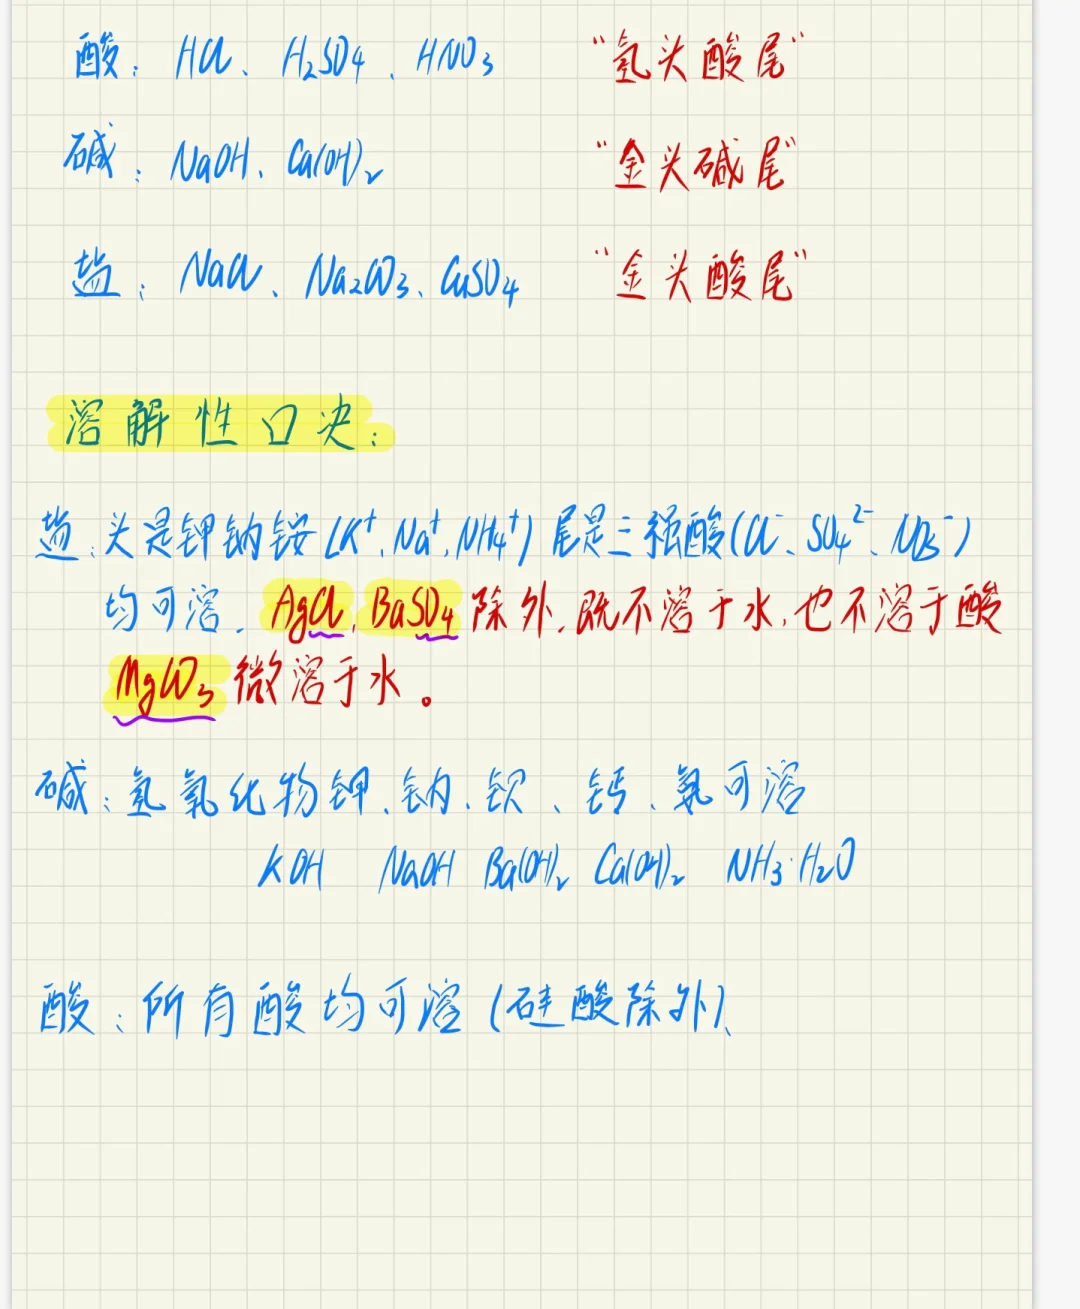 酸：HCl、H₂SO₄、HNO₃ “氢头酸尾”
碱：NaOH、Ca(OH)₂ “金头碱尾”
盐：NaCl、Na₂CO₃、CuSO₄ “金头酸尾”
溶解性口决：
盐：头是钾钠铵(K⁺、Na⁺、NH₄⁺) 尾是三强酸(Cl⁻、SO₄²⁻、NO₃⁻)
均可溶、AgCl、BaSO₄除外、既不溶于水，也不溶于酸
MgCO₃微溶于水。
碱：氢氧化物钾、钠、钡、钙、氨可溶
KOH NaOH Ba(OH)₂ Ca(OH)₂ NH₃·H₂O
酸：所有酸均可溶(硅酸除外)、